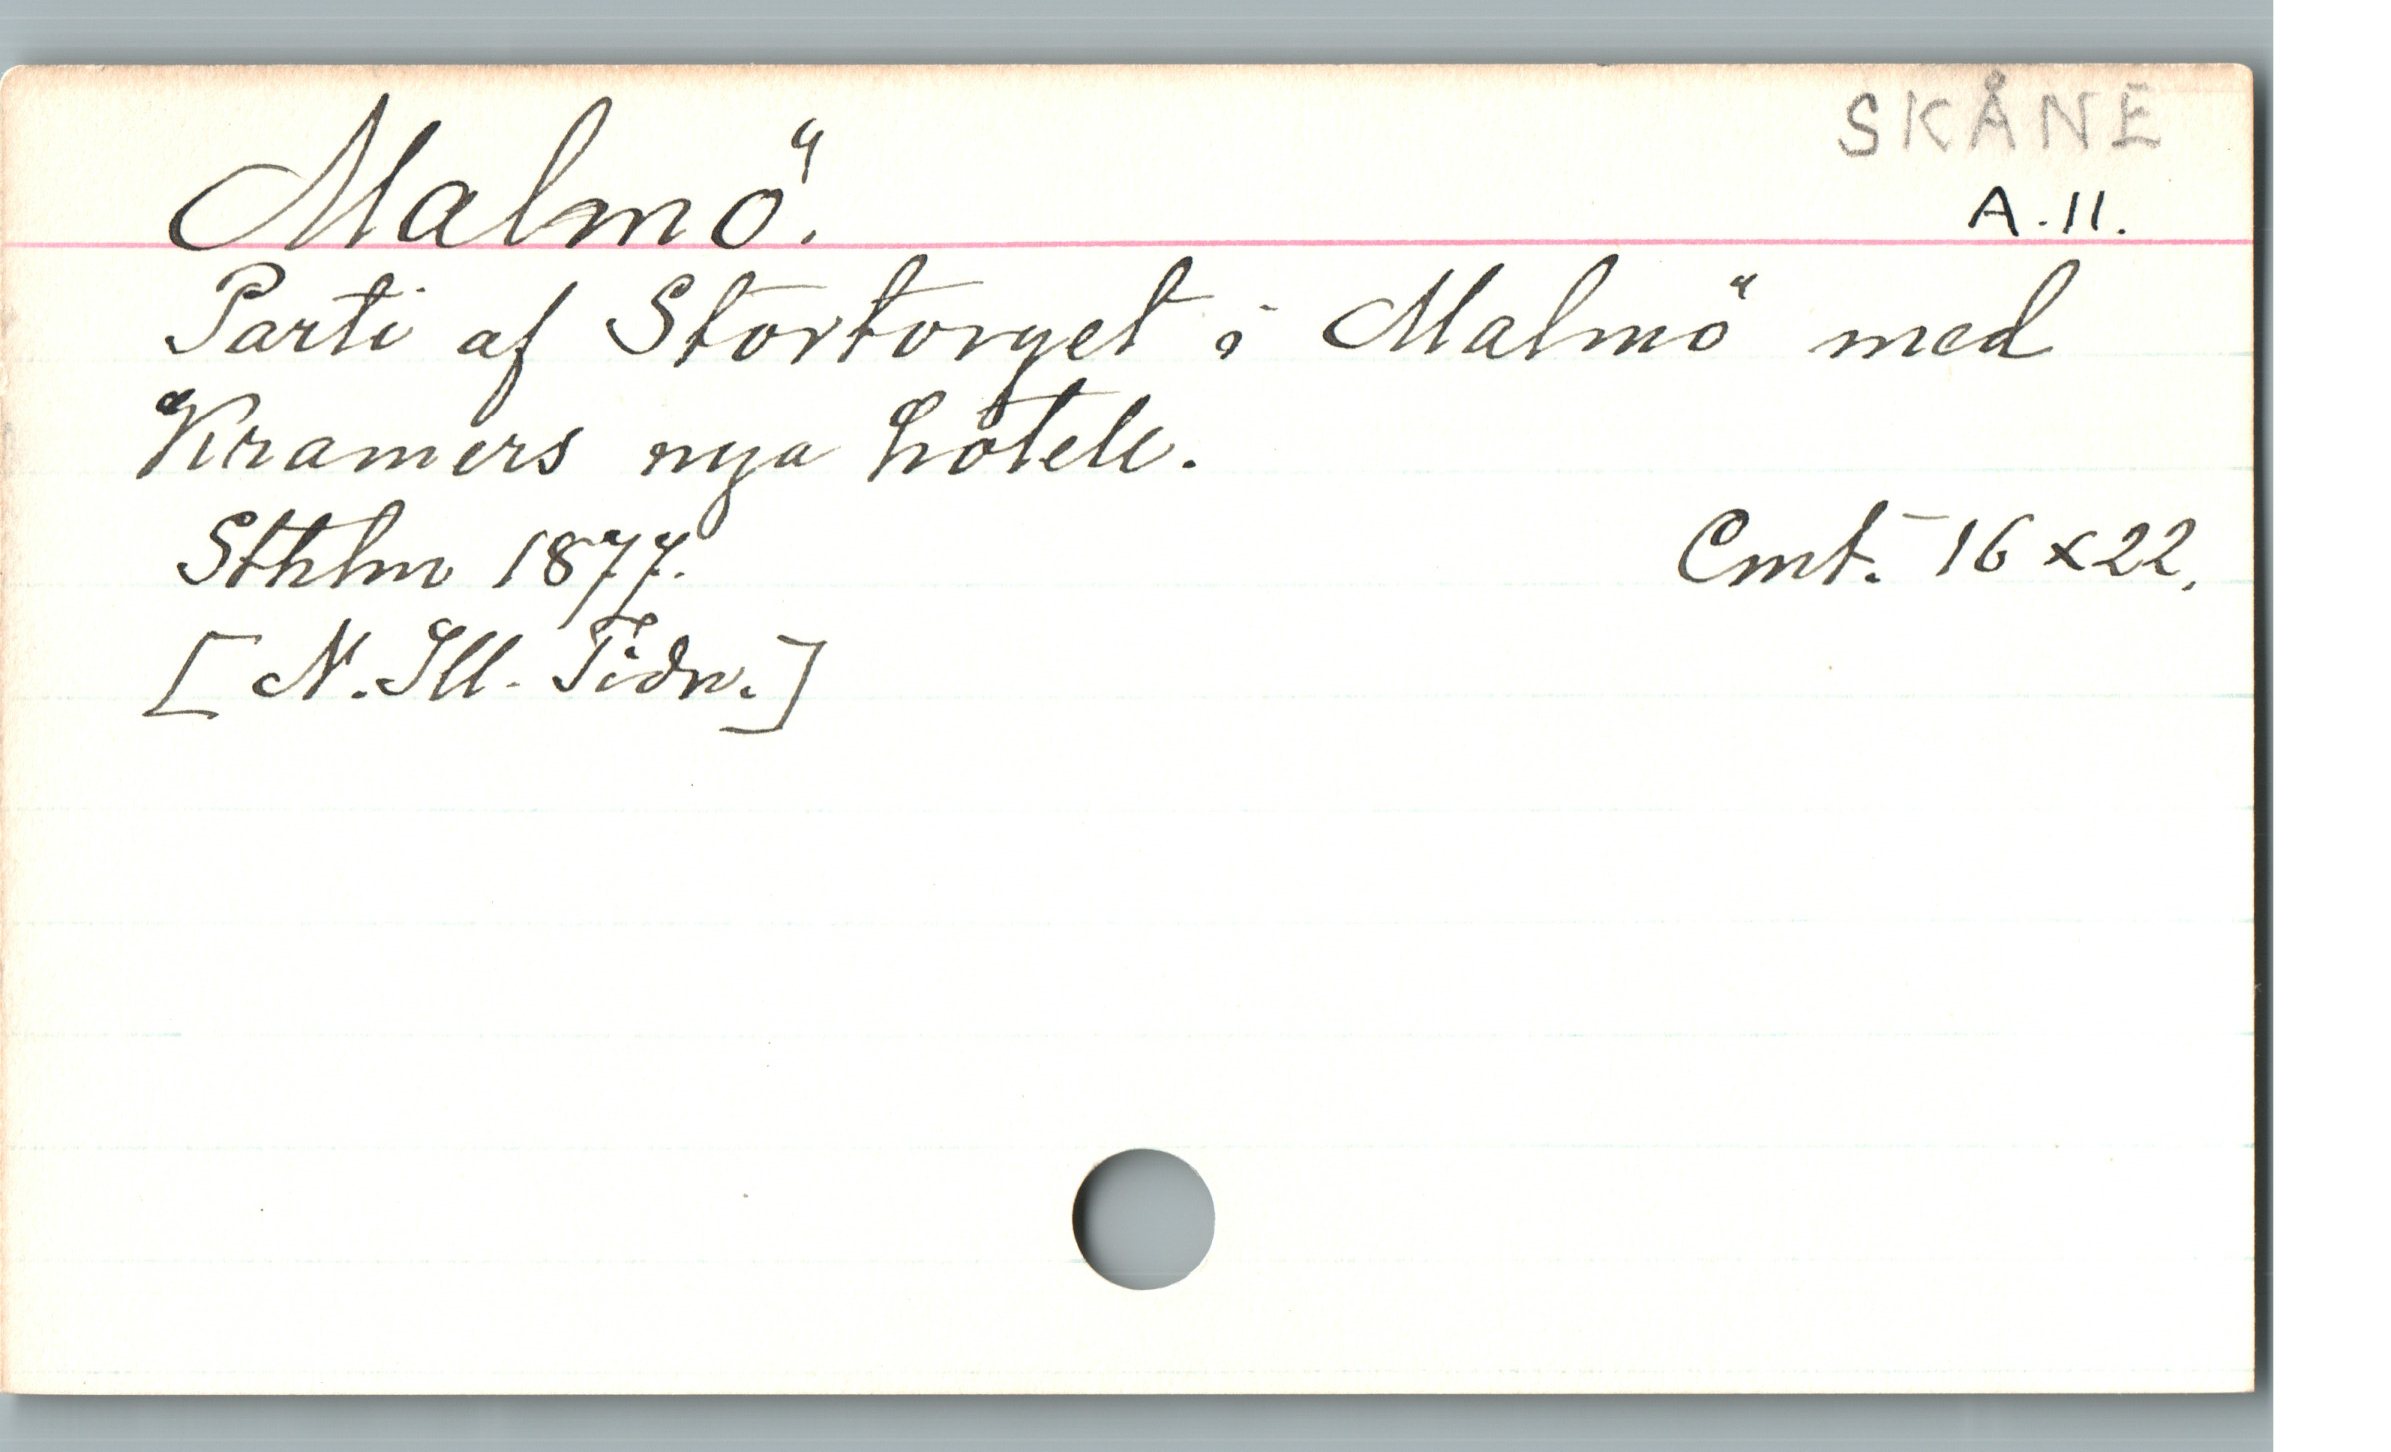 SKÅNE
Malmö.
A.11.
Parti af Stortorget i Malmö med
Kramers nya hôtell.
Sthlm 1877.
Cmt. 16 x 22.
[N. Ill. Tidn.]